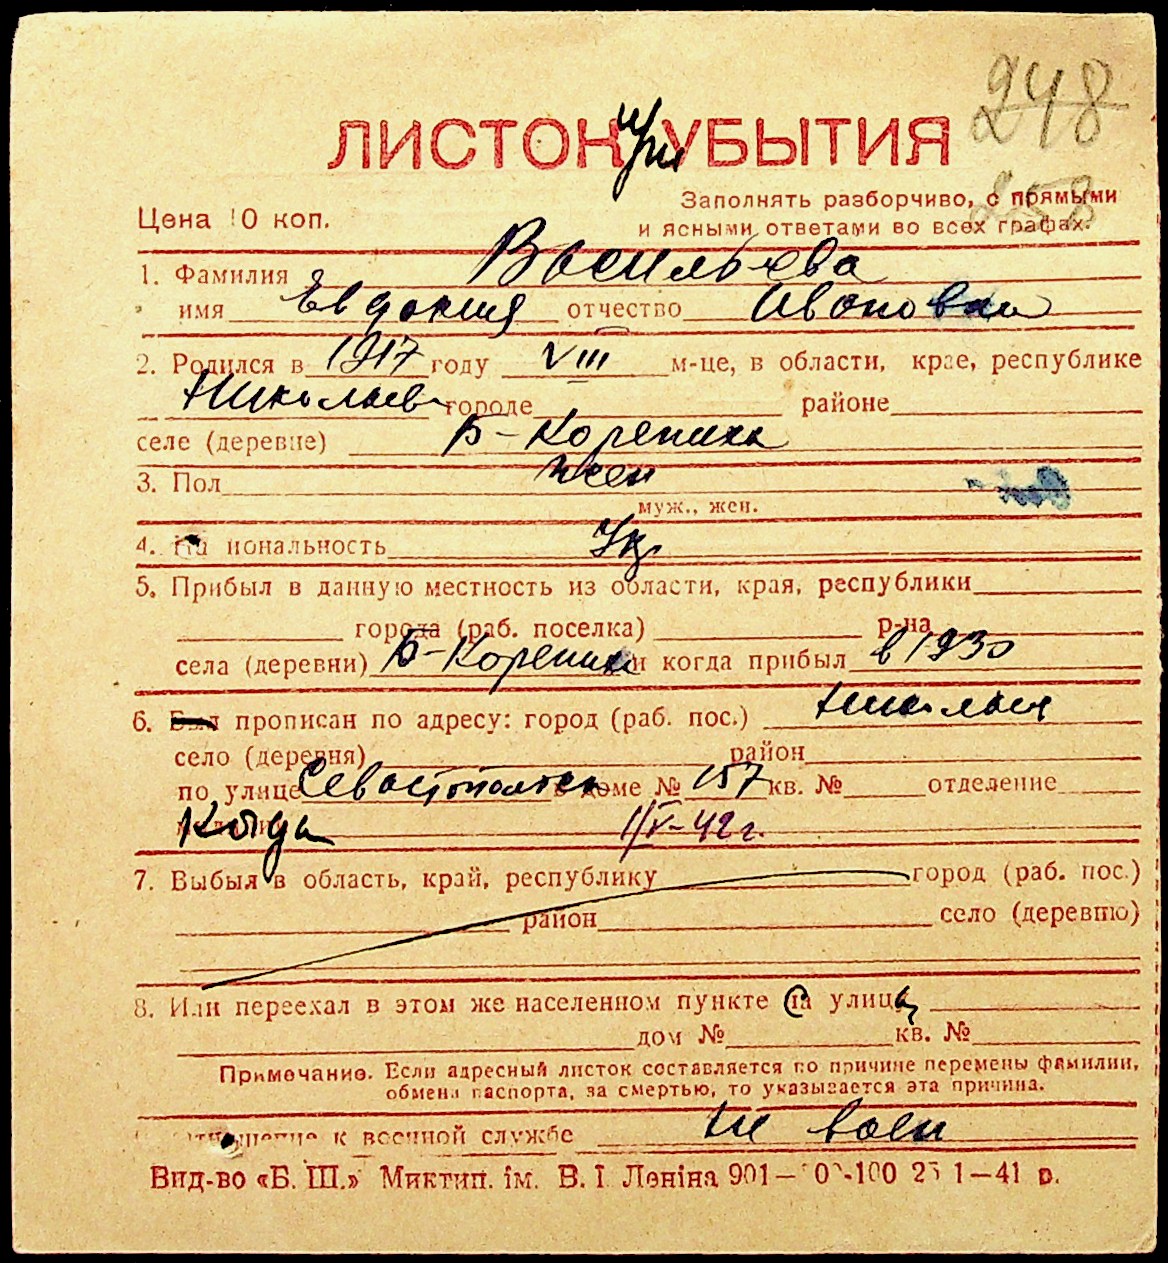 248
ЛИСТОК при УБЫТИЯ
258
Заполнять разборчиво, с прямыми
Цена 10 коп. и ясными ответами во всех графах.
1. Фамилия Васильева
имя Евдокия отчество Ивановна
2. Родился в 1917 году VIII м-це, в области, крае, республике
Николаев городе районе
селе (деревне) Б-Корениха
3. Пол жен
муж., жен.
4. Национальность Ук
5. Прибыл в данную местность из области, края, республики
города (раб. поселка) р-на
села (деревни) Б-Корениха и когда прибыл в 1930
6. Был прописан по адресу: город (раб. пос.) Николаев
село (деревня) район
по улице Севастопольск в доме № 157 кв. № отделение
Когда 1/V-42 г.
7. Выбыл в область, край, республику город (раб. пос.)
район село (деревню)
8. Или переехал в этом же населенном пункте на улицу
дом № кв. №
Примечание. Если адресный листок составляется по причине перемены фамилии,
обмена паспорта, за смертью, то указывается эта причина.
отношение к военной службе не воен
Вид-во «Б. Ш.» Миктип. ім. В. І. Леніна 901— -100 1—41 р.